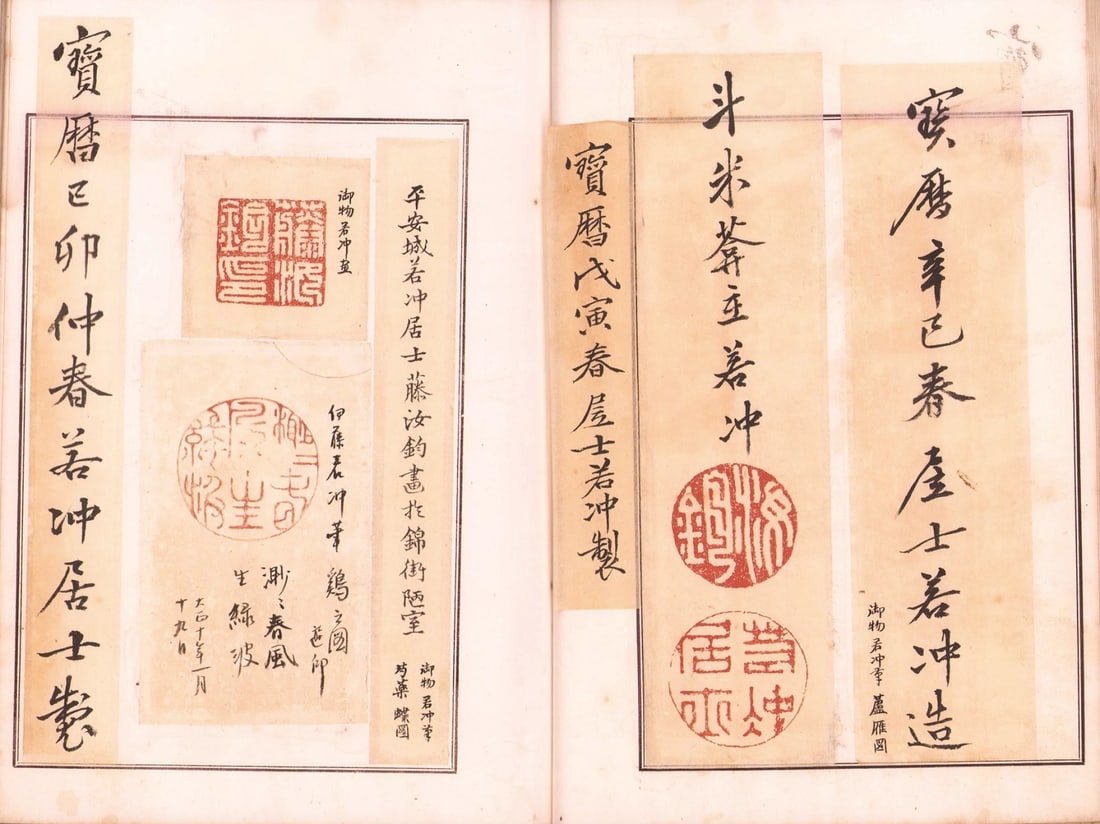 寶暦辛巳春居士若冲造
御物若冲筆 蘆雁図
斗米菴主若冲
汝鈞
若冲居士
寶暦戊寅春居士若冲製
平安城若冲居士藤汝鈞畫於錦街陋室
御物若冲筆
芍薬蝶図
御物若冲画
藤汝鈞印
伊藤若冲筆 鶏之図
遊印
渺〻春風
生緑波
大正十年一月
十九日
寶暦己卯仲春若冲居士製